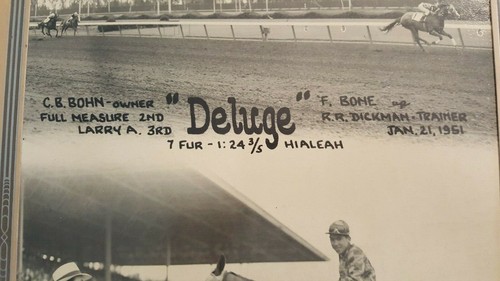 C.B. BOHN - OWNER
FULL MEASURE 2ND
LARRY A. 3RD
"Deluge"
F. BONE up
R.R. DICKMAN - TRAINER
JAN. 21, 1951
7 FUR - 1:24 3/5 HIALEAH